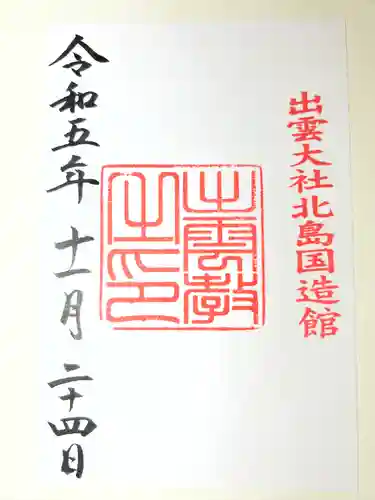 出雲大社北島国造館
出雲教
之印
令和五年 十一月 二十四日